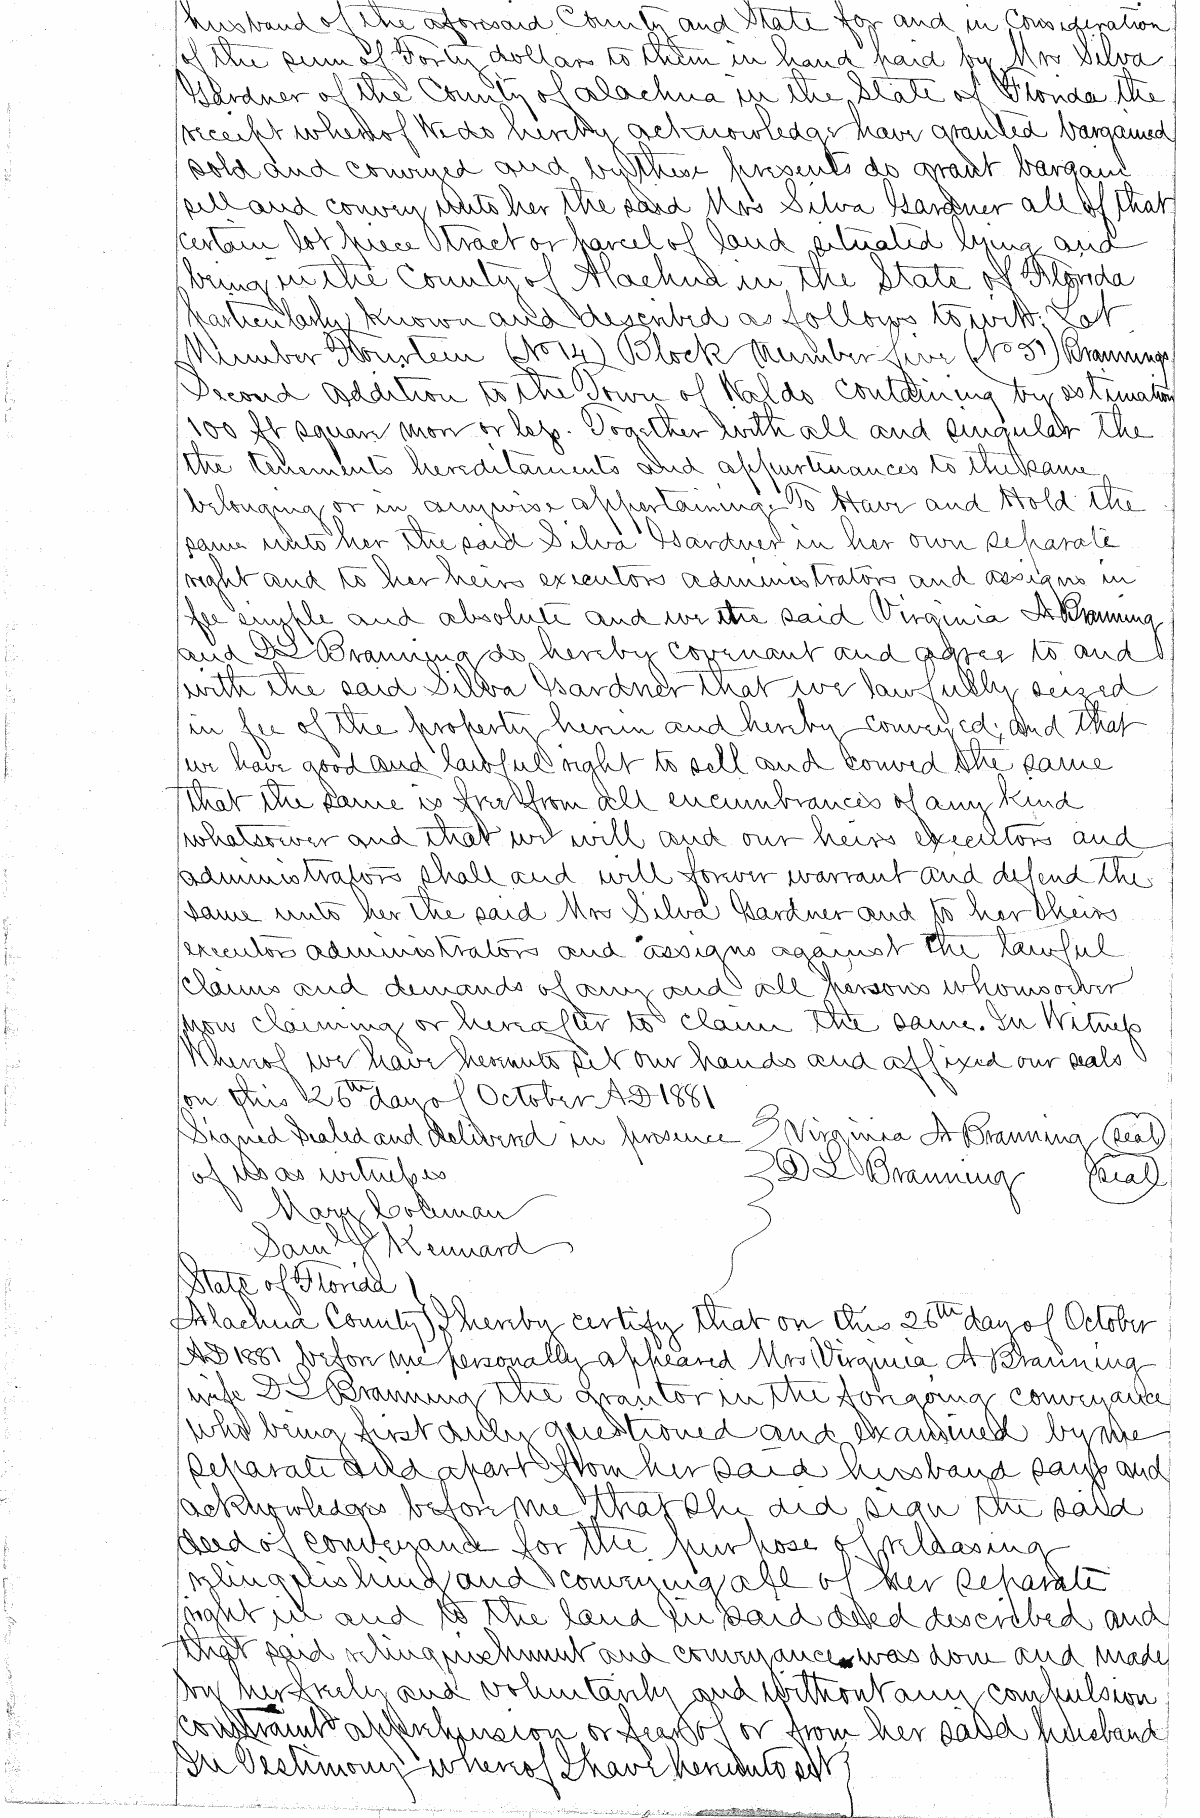 husband of the aforesaid County and State for and in Consideration
of the sum of Forty dollars to them in hand paid by Mrs Silva
Gardner of the County of Alachua in the State of Florida the
receipt whereof We do hereby acknowledge have granted bargained
sold and conveyed and by these presents do grant bargain
sell and convey unto her the said Mrs Silva Gardner all of that
certain lot piece tract or parcel of land situated lying and
being in the County of Alachua in the State of Florida
particularly known and described as follows to wit: Lot
Number Fourteen (No 14) Block Number five (No 5) Brannings
Second Addition to the Town of Waldo Containing by estimation
100 ft square more or less. Together with all and singular the
the tenements hereditaments and appurtenances to the same
belonging or in anywise appertaining. To Have and Hold the
same unto her the said Silva Gardner in her own separate
right and to her heirs executors administrators and assigns in
fee simple and absolute and we the said Virginia A Branning
and D L Branning do hereby covenant and agree to and
with the said Silva Gardner that we lawfully seized
in fee of the property herein and hereby conveyed; and that
we have good and lawful right to sell and conved the same
that the same is free from all encumbrances of any kind
whatsoever and that we will and our heirs executors and
administrators shall and will forever warrant and defend the
same unto her the said Mrs Silva Gardner and to her heirs
executors administrators and assigns against the lawful
claims and demands of any and all persons whomsoever
now claiming or hereafter to claim the same. In Witness
Whereof we have hereunto set our hands and affixed our seals
on this 26th day of October AD 1881
Signed Sealed and delivered in presence Virginia A Branning (seal)
of us as witnesses D L Branning (seal)
Mary Coleman
Saml J Kennard
State of Florida
Alachua County I hereby certify that on this 26th day of October
AD 1881 before me personally appeared Mrs Virginia A Branning
wife D L Branning the grantor in the forgoing conveyance
who being first duly questioned and examined by me
separate and apart from her said husband says and
acknowledges before me that she did sign the said
deed of conveyance for the purpose of releasing
relinquishing and conveying all of her separate
right in and to the land in said deed described and
that said relinquishment and conveyance was done and made
by her freely and voluntarily and without any compulsion
constraint apprehension or fear of or from her said husband
In Testimony whereof I have hereunto set